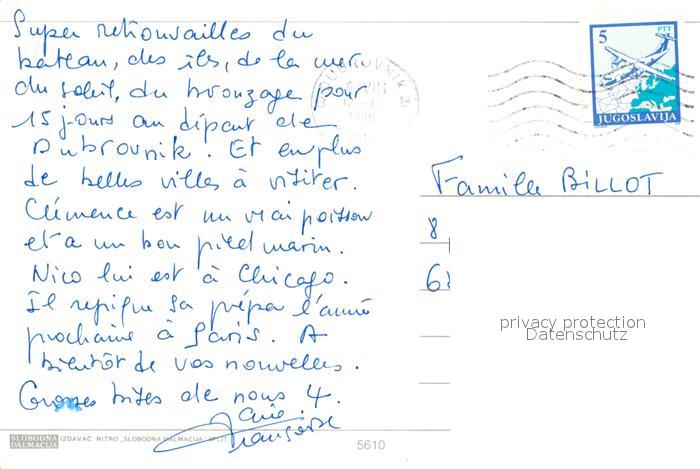 Super retrouvailles du
bateau, des îles, de la mer
du soleil, du bronzage pour
15 jours au départ de
Dubrovnik. Et en plus
de belles villes à visiter.
Clémence est un vrai poisson
et a un bon pied marin.
Nico lui est à Chicago.
Il repique sa prépa l'année
prochaine à Paris. A
bientôt de vos nouvelles.
Grosses bises de nous 4.
Françoise
SLOBODNA DALMACIJA IZDAVAČ: NITRO „SLOBODNA DALMACIJA" SPLIT
5610
DUBROVNIK
5 PTT
JUGOSLAVIJA
Famille BILLOT
8
68
privacy protection
Datenschutz